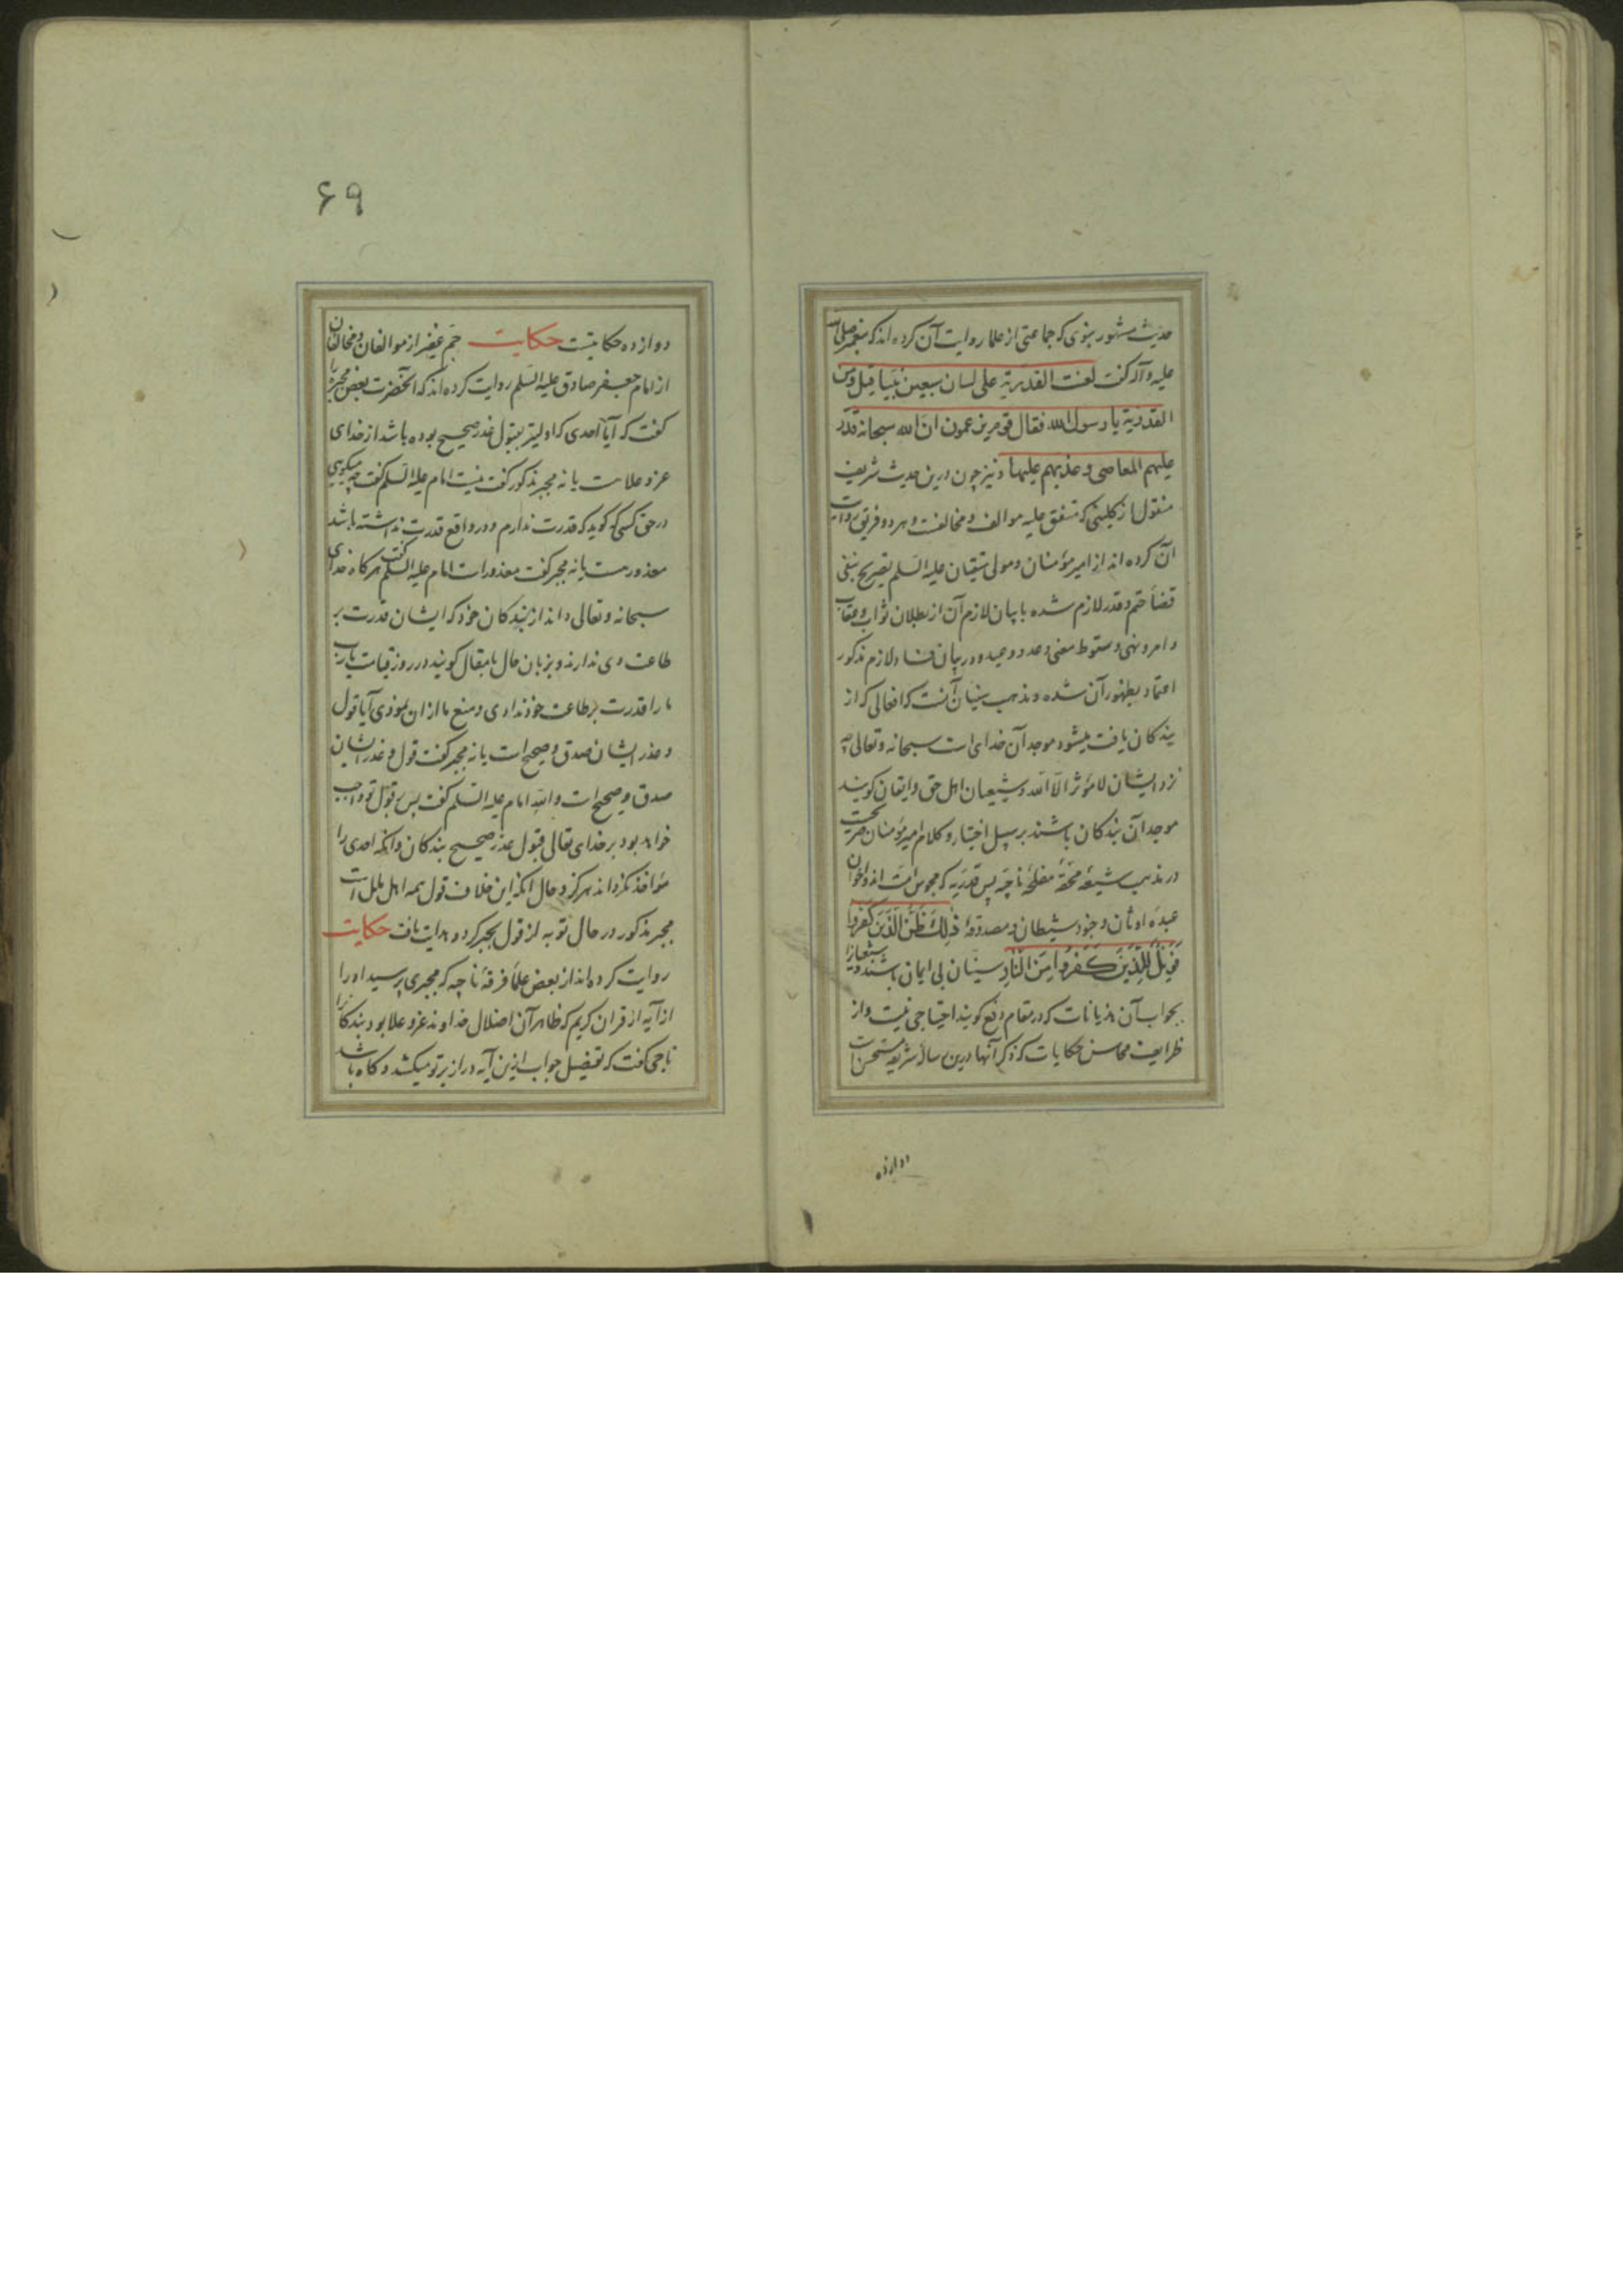 حدیث مشهور نبوی که جماعتی از علما روایت آن کرده اند که پیغمبر صلی الله
علیه و آله گفت لعنت القدریة علی لسان سبعین نبیا قیل و من
القدریة یا رسول الله فقال قوم یزعمون ان الله سبحانه قدر
علیهم المعاصی و عذبهم علیها و نیز چون درین حدیث شریف
منقول از کلینی که متفق علیه موالف و مخالفست و هر دو فریق روایت
آن کرده اند از امیر مؤمنان و مولی متقیان علیه السلم تصریح بنفی
قضاء حتم و قدر لازم شده با بیان لازم آن از بطلان ثواب و عقاب
و امر و نهی و سقوط معنی وعد و وعید و در بیان فساد لازم مذکور
اعتماد بظهور آن شده و مذهب سنیان آنست که افعالی که از
بندکان یافت میشود موجد آن خدای است سبحانه و تعالی چه
نزد ایشان لا مؤثر الا الله و شیعیان اهل حق و ایقان کویند
موجد آن بندکان باشند بر سبیل اختیار و کلام امیر مؤمنان صریحست
در مذهب شیعه محقه مفلحه ناجیه پس قدریه که مجوس امت اند و اخوان
عبده اوثان و جنود شیطان و مصدوقه ذلک ظن الذین کفروا
فویل للذین کفروا من النار سنیان بی ایمان باشند و شیعیانرا
بجواب آن هذیانات که در مقام دفع کویند احتیاجی نیست و از
ظرایف محاسن حکایات که ذکر آنها درین رساله شریفه مستحسن است
دوازده
۶۹
دوازده حکایتست حکایت جم غفیر از موالفان و مخالفان
از امام جعفر صادق علیه السلم روایت کرده اند که آنحضرت بعض مجبره را
گفت که آیا احدی که اولیتر بقبول عذر صحیح بوده باشد از خدای
عز و علا هست یا نه مجبر مذکور گفت نیست امام علیه السلم گفت چه میکویی
در حق کسی که کوید که قدرت ندارم و در واقع قدرت نداشته باشد
معذور هست یا نه مجبر گفت معذور است امام علیه السلم گفت هرکاه خدای
سبحانه و تعالی داند از بندکان خود که ایشان قدرت بر
طاعت وی ندارند و بزبان حال یا مقال کویند در روز قیامت یا رب
ما را قدرت بر طاعت خود ندادی و منع ما از آن نمودی آیا قول
و عذر ایشان صدق و صحیح است یا نه مجبر گفت قول و عذر ایشان
صدق و صحیح است والله امام علیه السلم گفت پس بقول تو واجب
خواهد بود بر خدای تعالی قبول عذر صحیح بندکان و آنکه احدی را
مؤاخذ نکرداند هرکز و حال آنکه این خلاف قول همه اهل ملل است
مجبر مذکور در حال توبه از قول بجبر کرد و هدایت یافت حکایت
روایت کرده اند از بعض علماء فرقه ناجیه که مجبری پرسید او را
از آیه از قران کریم که ظاهر آن اضلال خداوند عز و علا بود بندکانرا
ناجی گفت که تفصیل جواب ازین آیه دراز بر تو میکشد و کاه باشد